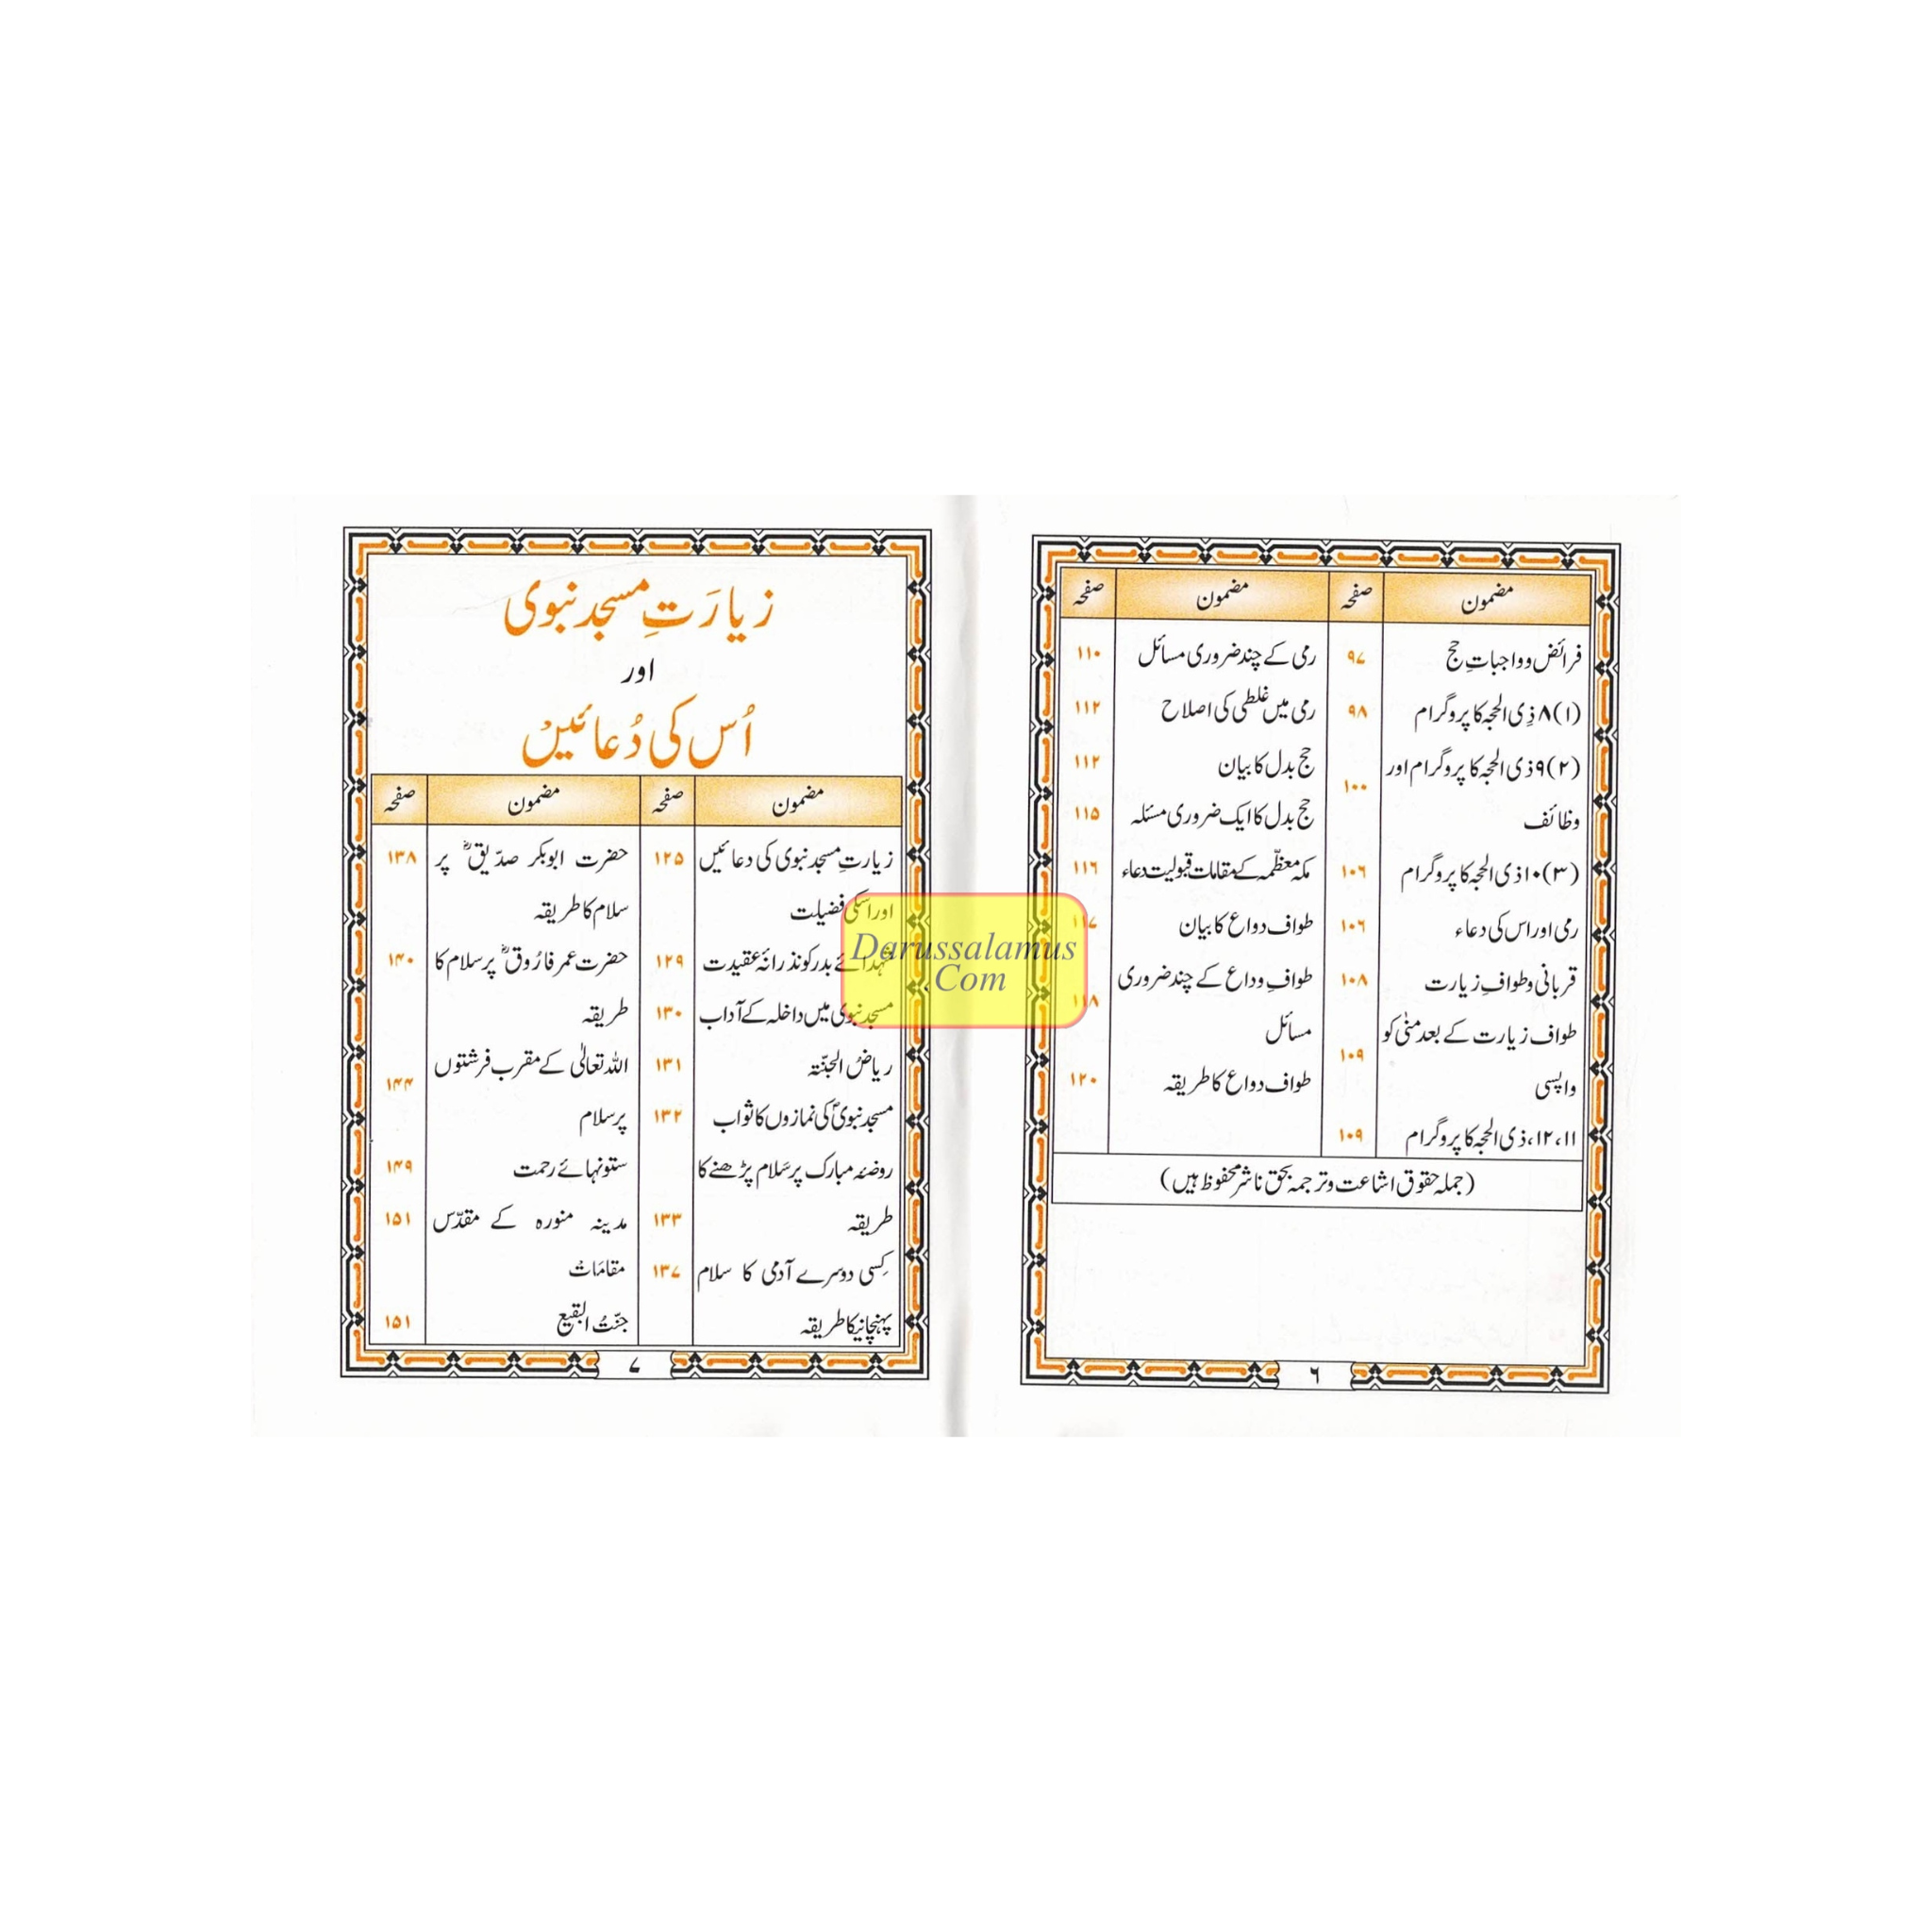 مضمون
صفحہ
مضمون
صفحہ
فرائض و واجباتِ حج
۹۷
(۱) ۸ ذی الحجہ کا پروگرام
۹۸
(۲) ۹ ذی الحجہ کا پروگرام اور
وظائف
۱۰۰
(۳) ۱۰ ذی الحجہ کا پروگرام
۱۰۶
رمی اور اس کی دعاء
۱۰۶
قربانی و طوافِ زیارت
۱۰۸
طواف زیارت کے بعد منیٰ کو
واپسی
۱۰۹
۱۱، ۱۲، ذی الحجہ کا پروگرام
۱۰۹
رمی کے چند ضروری مسائل
۱۱۰
رمی میں غلطی کی اصلاح
۱۱۲
حج بدل کا بیان
۱۱۲
حج بدل کا ایک ضروری مسئلہ
۱۱۵
مکہ معظّمہ کے مقامات قبولیت دعاء
۱۱۶
طواف وداع کا بیان
۱۱۷
طوافِ وداع کے چند ضروری
مسائل
۱۱۸
طواف وداع کا طریقہ
۱۲۰
(جملہ حقوق اشاعت و ترجمہ بحق ناشر محفوظ ہیں)
۶
زیارَتِ مسجد نبوی
اور
اُس کی دُعائیں
مضمون
صفحہ
مضمون
صفحہ
زیارتِ مسجد نبوی کی دعائیں
۱۲۵
اور اسکی فضیلت
شہدائے بدر کو نذرانہ عقیدت
۱۲۹
مسجد نبوی میں داخلہ کے آداب
۱۳۰
ریاضُ الجنّتہ
۱۳۱
مسجد نبویؐ کی نمازوں کا ثواب
۱۳۲
روضئہ مبارک پر سَلام پڑھنے کا
طریقہ
۱۳۳
کِسی دوسرے آدمی کا سلام
۱۳۷
پہنچانیکا طریقہ
حضرت ابوبکر صدّیقؓ پر
۱۳۸
سلام کا طریقہ
حضرت عمر فارُوقؓ پر سلام کا
۱۴۰
طریقہ
اللہ تعالیٰ کے مقرب فرشتوں
۱۴۴
پر سلام
ستونہائے رحمت
۱۴۹
مدینہ منورہ کے مقدّس
۱۵۱
مقامَات
جنّتُ البقیع
۱۵۱
۷
Darussalamus
.Com